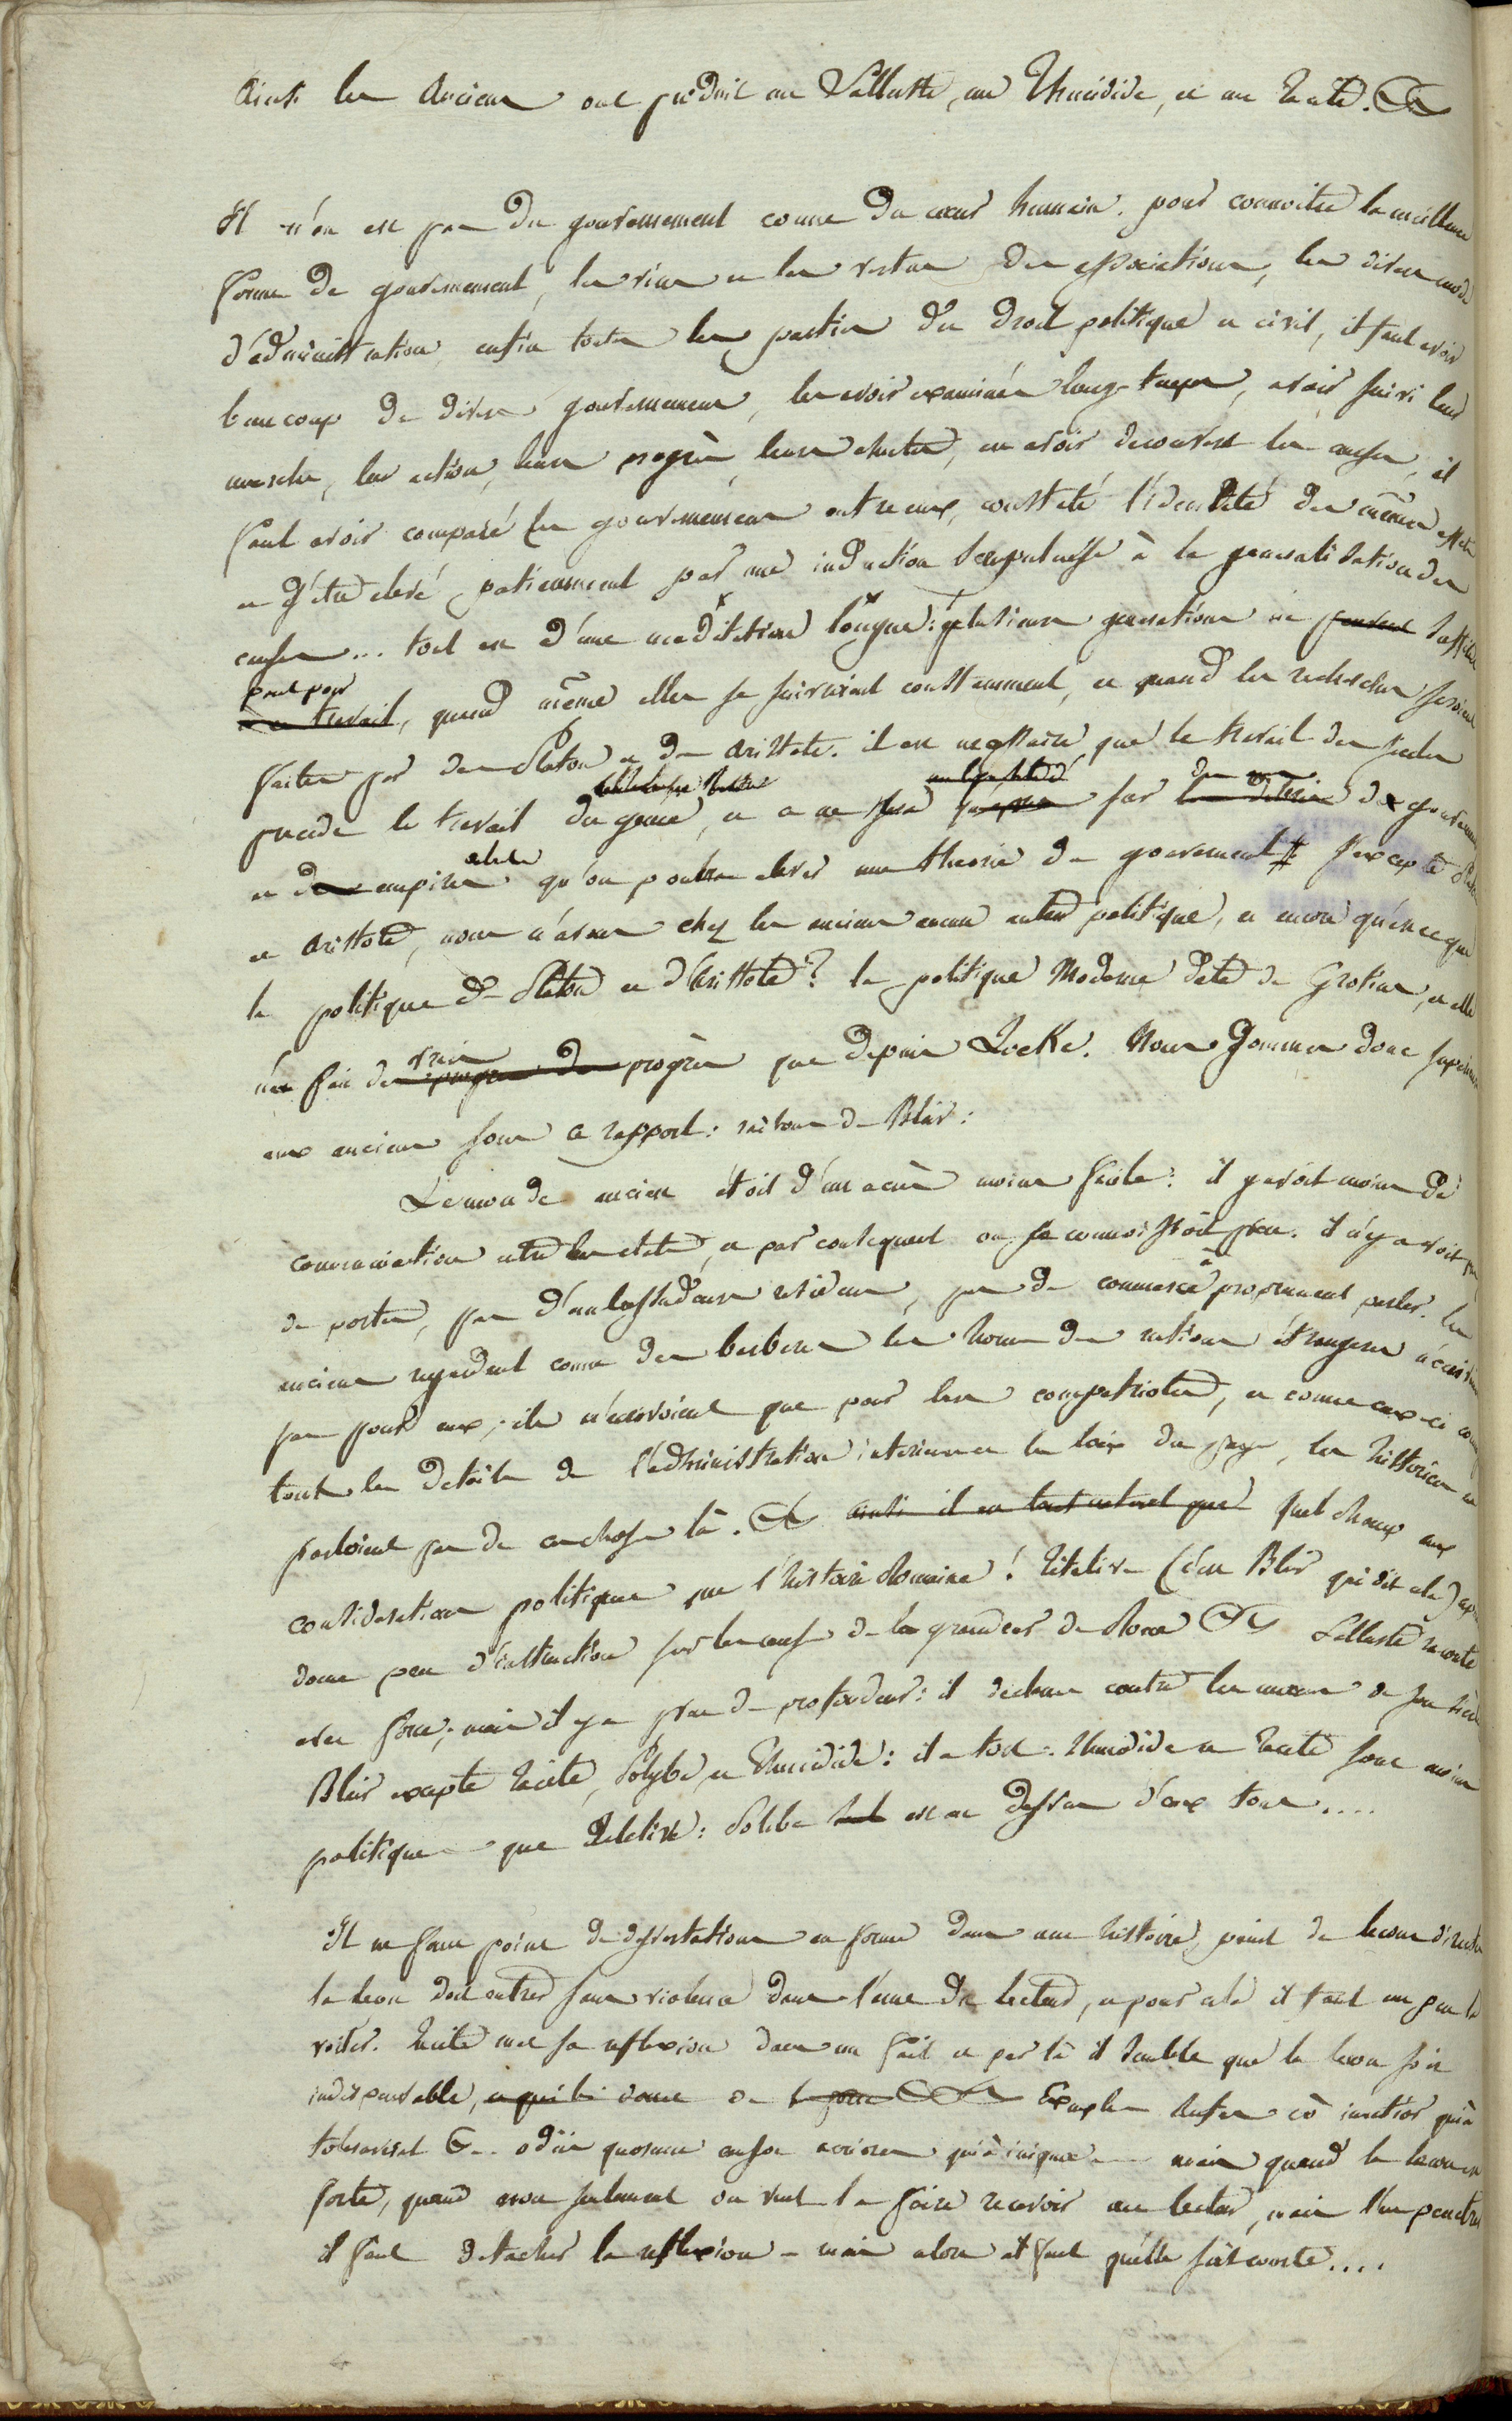 Ainsi les Anciens ont produit un Salluste, un Thucidide, et un Tacite. &c
Il n'en est pas du gouvernement comme du cœur humain. pour connoitre la meilleure
forme de gouvernement, les vices et les vertus des associations, les divers modes
d'administration, enfin toutes les parties du droit politique et civil, il faut avoir
beaucoup de divers gouvernemens, les avoir examinés long-temps, avoir suivi leur
marche, leur action, leurs progrès, leurs chutes, en avoir decouvert les causes, il
faut avoir comparé les gouvernemens entre eux, constaté l'identité des mêmes effets
et s'être elevé patiemment par une induction scrupuleuse à la generalisation des
causes... tout est d'une meditation longue: plusieurs generations ne peuvent suffire
peut pas
travail, quand même elles se suivroient constamment, et quand les recherches seroient
faites par des Platon et des Aristote. il est necessaire que le travail des siecles
precede le travail du genie, et ce ne sera que sur les debris de gouvernemens
et des empires qu'on poudra elever une theorie de gouvernement # J'excepte Platon
et Aristote, nous n'avons chez les anciens aucun auteur politique, et encore qu'est-ce que
la politique de Platon et d'Aristote? la politique Moderne date de Grotius, et elle
n'a fait de vrais progrès que depuis Locke. Nous sommes donc superieurs
aux anciens sous ce rapport: raisons de Blair:
Le monde ancien étoit d'un accès moins facile: il y avoit moins de
communication entre les etats, et par consequent on se connoissoit peu. il n'y avoit pas
de postes, pas d'ambassadeurs residens, pas de commerce à proprement parler. les
anciens regardent comme des barbares les hommes des nations étrangeres n'écrivoient
pas pour eux; ils n'ecrivoient que pour leurs compatriotes, et comme ceux-ci
tous les details de l'administration interieure et les loix du pays, les historiens ne
parloient pas de ces choses là. &c ainsi il est tout naturel que quel champ aux
considerations politiques que l'histoire Romaine! Titelive (c'est Blair qui dit cela)
donne peu d'instruction sur les causes de la grandeur de Rome &c Salluste raconte
avec force; mais il y a peu de profondeur: il declame contre les mœurs de son siècle
Blair excepte Tacite, Polybe, et Thucidide: il a tort. Thucidide et Tacite sont moins
politiques que Titelive: Polibe est au dessus d'eux tous....
Il ne faut point de dissertations en forme dans une histoire, point de lecons directes
la lecon doit entrer sans violence dans l'ame du lecteur, et pour cela il faut un peu la
voiler. Tacite met sa reflexion dans un fait et par là il semble que la lecon soit
indispensable, et qui lui donne de la force &c Exemples Rufus eò immitior quia
toleraverat &c.. odii quorum causæ acriores quia iniquæ... mais quand la lecon est
forte, quand non seulement on veut la faire recevoir au lecteur, mais l'en penetrer
il faut detacher la reflexion - mais alors il faut qu'elle soit courte....